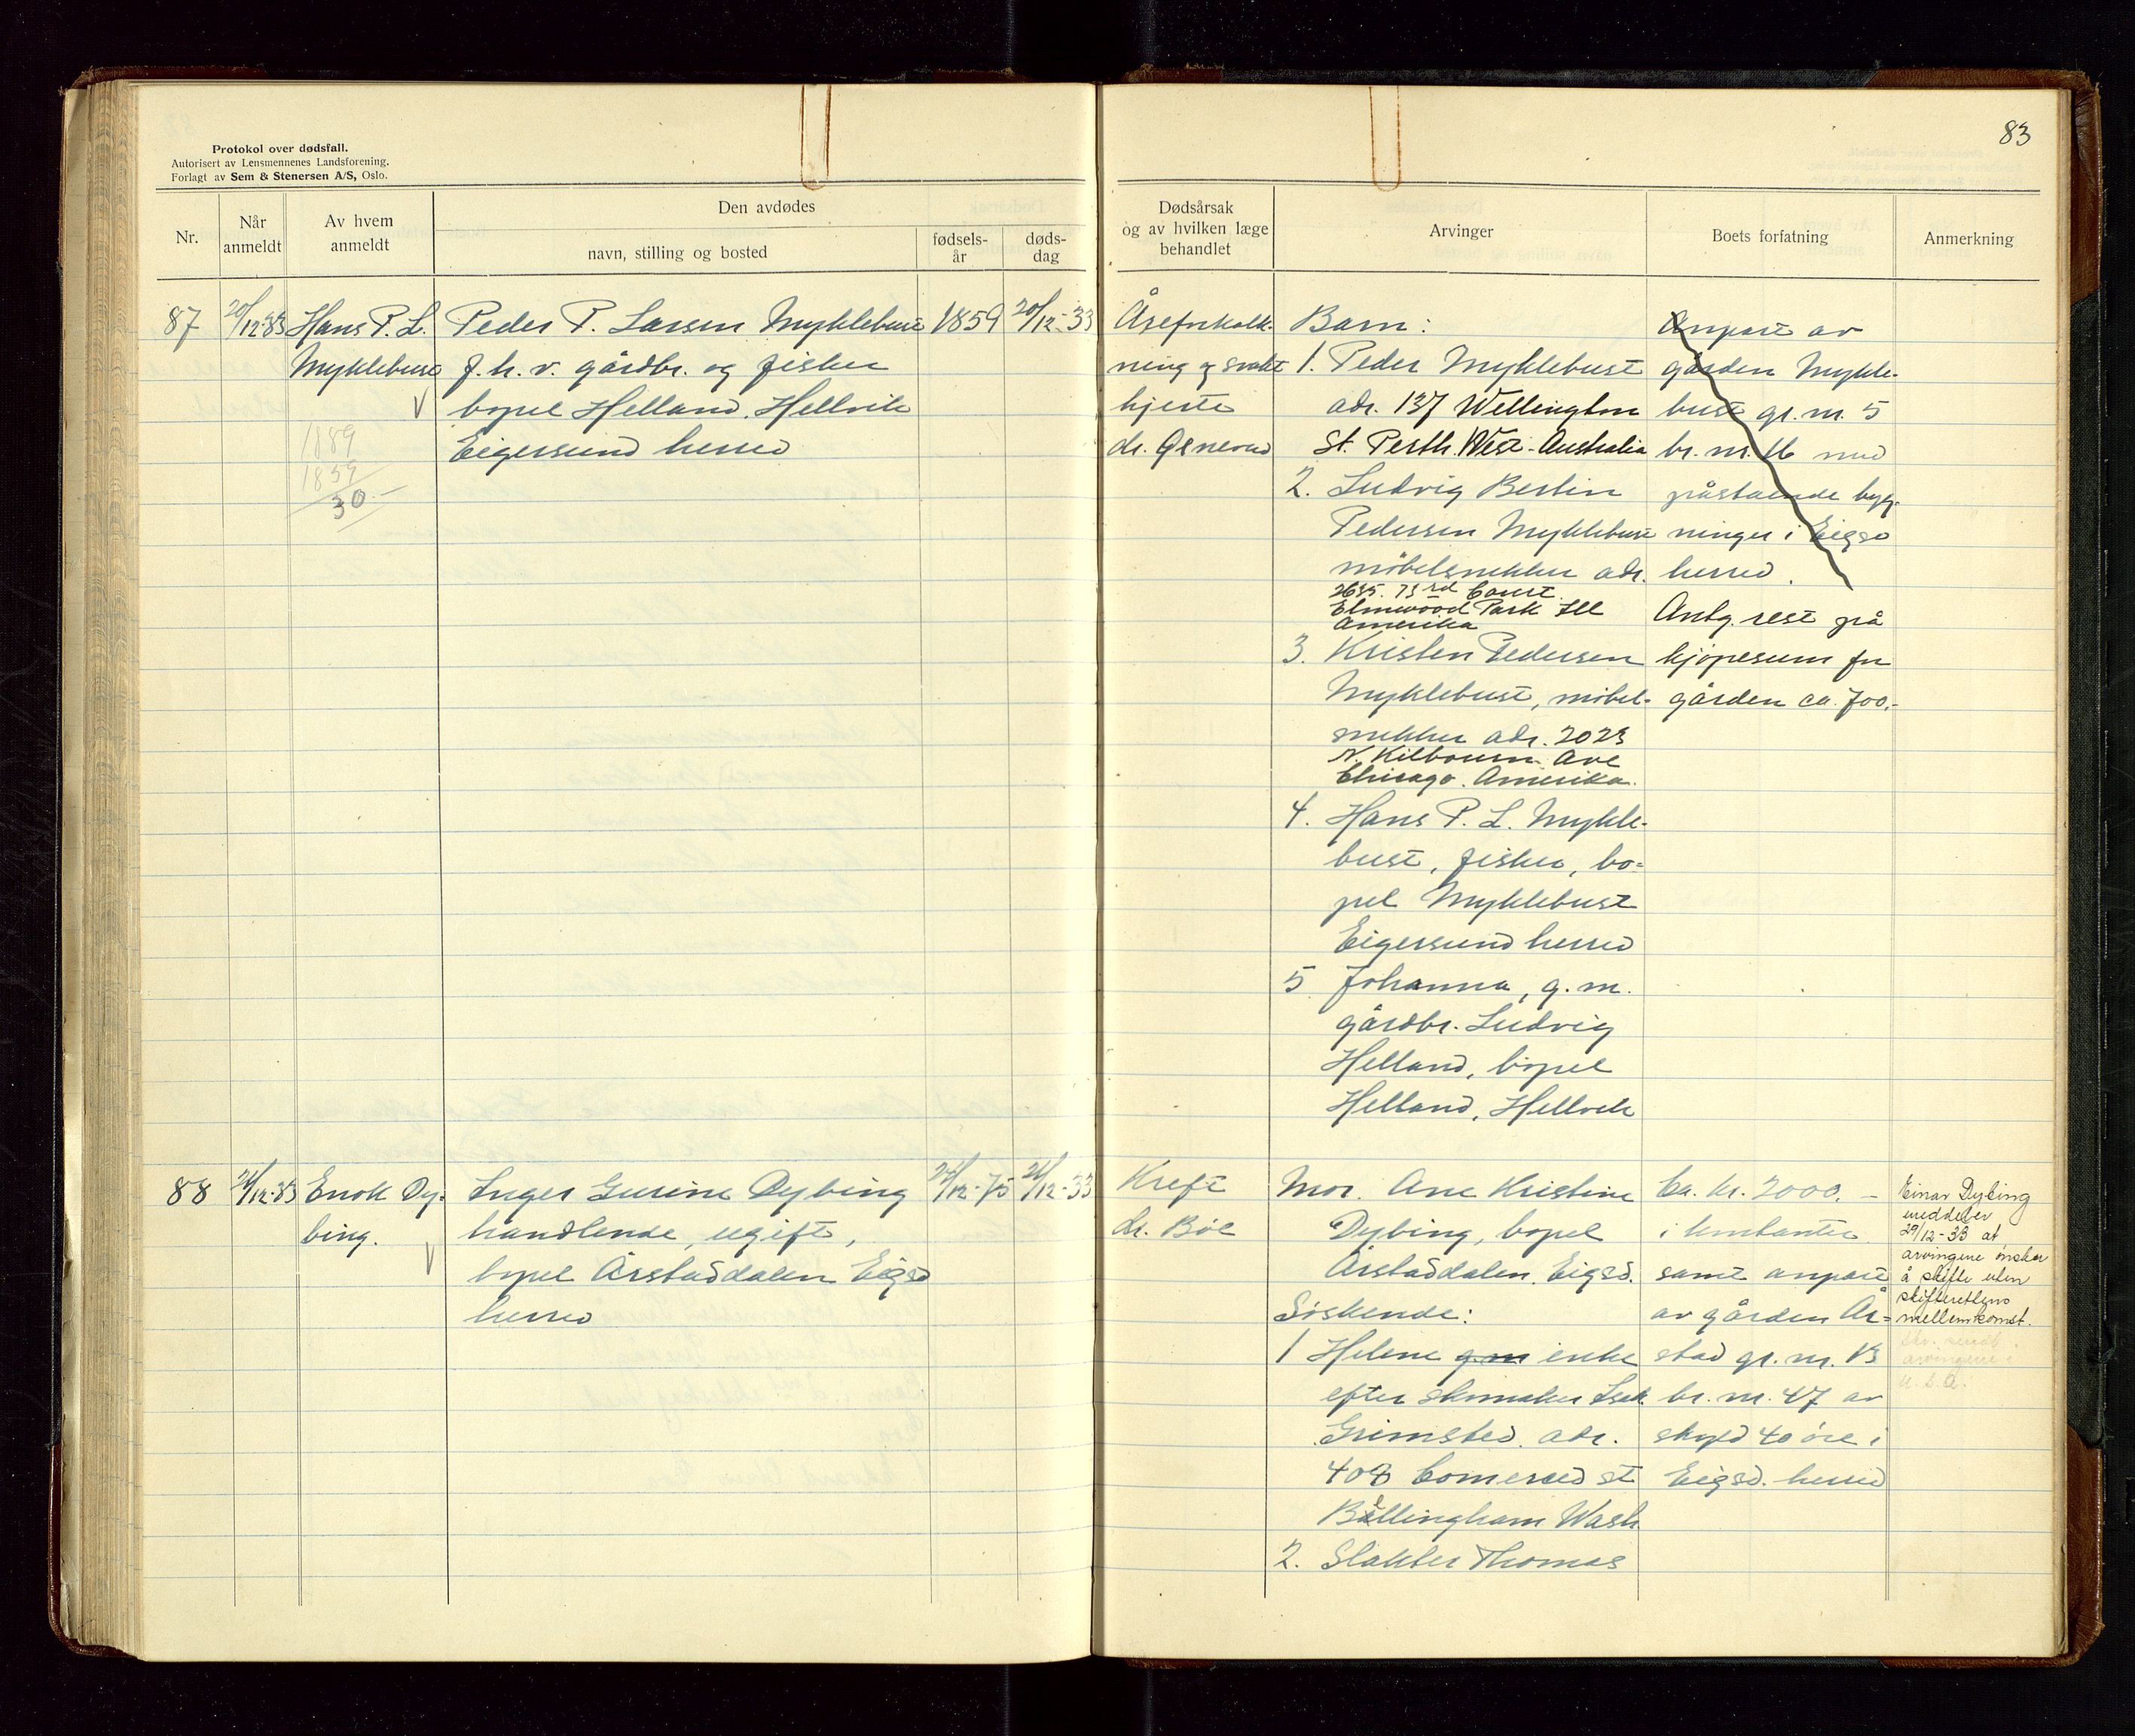 83
Protokol over dødsfall.
Autorisert av Lensmennenes Landsforening.
Forlagt av Sem & Stenersen A/S, Oslo.
Nr.
Når anmeldt
Av hvem anmeldt
Den avdødes
navn, stilling og bosted
fødsels-år
døds-dag
Dødsårsak og av hvilken læge behandlet
Arvinger
Boets forfatning
Anmerkning
87
20/12-33
Hans P. L.
Myklebust
1889
1859
30
Peder P. Larsen Myklebust
f. h. v. gårdbr. og fisker
bopel Helland, Hellvik
Eigersund herred
1859
20/12-33
Åreforkalk-
ning og svakt
hjerte
dr.
Barn:
1. Peder Myklebust
adr. 137 Wellington
St. Perth. West-Australia
2. Ludvig Bertin
Pedersen Myklebust
møbelsnekker adr.
2635. 73rd Court
Elmwood Park Ill
Amerika
3. Kristen Pedersen
Myklebust, møbel-
snekker adr. 2023
N. Kilbourn Ave
Chicago. Amerika.
4. Hans P. L. Mykle-
bust, fisker, bo-
pel Myklebust
Eigersund herred
5 Johanna, g. m.
gårdbr. Ludvig
Helland, bopel
Helland, Hellvik
Anpart av
gården Mykle-
bust gr. nr. 5
br. nr. 16 med
påstående byg-
ninger i Eigsd
herred.
Antg. rest på
kjøpesum for
gården ca. 700.-
88
21/12-33
Enok Dy-
bing.
Inger Gurine Dybing
handlende, ugift,
bopel Årstaddalen Eigsd
herred
24/12-75
21/12-33
Kreft
dr. Bøe
Mor. Ane Kristine
Dybing, bopel
Årstaddalen. Eigsd.
Søskende:
1 Helene g.m enke
efter skomaker Isak
Grimsted. adr.
408 Comerced st
Bellingham Wash
2. Slakter Thomas
Ca. kr. 2000. -
i kontanter
samt anpart
av gården År-
stad gr. nr. 13
br. nr. 47 av
skyld 40 øre i
Eigsd. herred
Einar Dybing
meddeler
29/12-33 at
arvingene ønsker
å skifte uten
skifterettens
mellemkomst.
arvingene i
U.S.A.